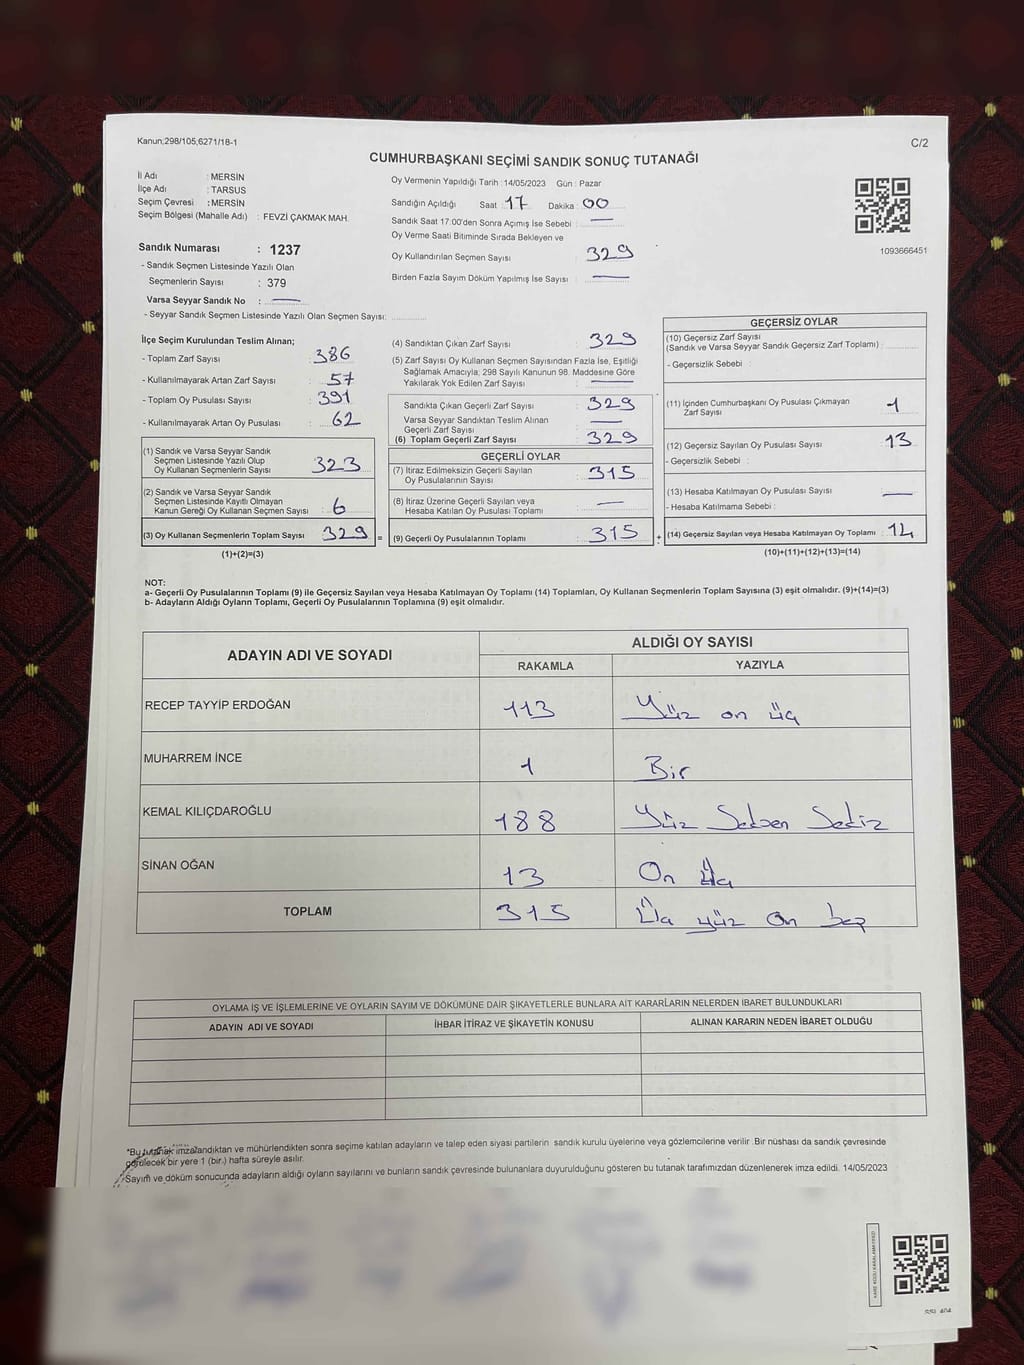 Kanun;298/105;6271/18-1
C/2
CUMHURBAŞKANI SEÇİMİ SANDIK SONUÇ TUTANAĞI
İl Adı : MERSİN
İlçe Adı : TARSUS
Seçim Çevresi : MERSİN
Seçim Bölgesi (Mahalle Adı) : FEVZİ ÇAKMAK MAH.
Sandık Numarası : 1237
- Sandık Seçmen Listesinde Yazılı Olan
Seçmenlerin Sayısı : 379
Varsa Seyyar Sandık No : —
- Seyyar Sandık Seçmen Listesinde Yazılı Olan Seçmen Sayısı:
Oy Vermenin Yapıldığı Tarih : 14/05/2023 Gün : Pazar
Sandığın Açıldığı Saat : 17 Dakika : 00
Sandık Saat 17:00'den Sonra Açımış İse Sebebi : —
Oy Verme Saati Bitiminde Sırada Bekleyen ve
Oy Kullandırılan Seçmen Sayısı : 329
Birden Fazla Sayım Döküm Yapılmış İse Sayısı : —
1093666451
İlçe Seçim Kurulundan Teslim Alınan;
- Toplam Zarf Sayısı : 386
- Kullanılmayarak Artan Zarf Sayısı : 57
- Toplam Oy Pusulası Sayısı : 391
- Kullanılmayarak Artan Oy Pusulası : 62
(1) Sandık ve Varsa Seyyar Sandık
Seçmen Listesinde Yazılı Olup
Oy Kullanan Seçmenlerin Sayısı : 323
(2) Sandık ve Varsa Seyyar Sandık
Seçmen Listesinde Kayıtlı Olmayan
Kanun Gereği Oy Kullanan Seçmen Sayısı : 6
(3) Oy Kullanan Seçmenlerin Toplam Sayısı : 329 =
(1)+(2)=(3)
(4) Sandıktan Çıkan Zarf Sayısı : 329
(5) Zarf Sayısı Oy Kullanan Seçmen Sayısından Fazla İse, Eşitliği
Sağlamak Amacıyla; 298 Sayılı Kanunun 98. Maddesine Göre
Yakılarak Yok Edilen Zarf Sayısı : —
Sandıkta Çıkan Geçerli Zarf Sayısı : 329
Varsa Seyyar Sandıktan Teslim Alınan
Geçerli Zarf Sayısı : —
(6) Toplam Geçerli Zarf Sayısı : 329
GEÇERLİ OYLAR
(7) İtiraz Edilmeksizin Geçerli Sayılan
Oy Pusulalarının Sayısı : 315
(8) İtiraz Üzerine Geçerli Sayılan veya
Hesaba Katılan Oy Pusulası Toplamı : —
(9) Geçerli Oy Pusulalarının Toplamı : 315 +
GEÇERSİZ OYLAR
(10) Geçersiz Zarf Sayısı
(Sandık ve Varsa Seyyar Sandık Geçersiz Zarf Toplamı) :
- Geçersizlik Sebebi :
(11) İçinden Cumhurbaşkanı Oy Pusulası Çıkmayan
Zarf Sayısı : 1
(12) Geçersiz Sayılan Oy Pusulası Sayısı : 13
- Geçersizlik Sebebi :
(13) Hesaba Katılmayan Oy Pusulası Sayısı : —
- Hesaba Katılmama Sebebi :
(14) Geçersiz Sayılan veya Hesaba Katılmayan Oy Toplamı : 14
(10)+(11)+(12)+(13)=(14)
NOT:
a- Geçerli Oy Pusulalarının Toplamı (9) ile Geçersiz Sayılan veya Hesaba Katılmayan Oy Toplamı (14) Toplamları, Oy Kullanan Seçmenlerin Toplam Sayısına (3) eşit olmalıdır. (9)+(14)=(3)
b- Adayların Aldığı Oyların Toplamı, Geçerli Oy Pusulalarının Toplamına (9) eşit olmalıdır.
ADAYIN ADI VE SOYADI
ALDIĞI OY SAYISI
RAKAMLA YAZIYLA
RECEP TAYYİP ERDOĞAN 113 Yüz on üç
MUHARREM İNCE 1 Bir
KEMAL KILIÇDAROĞLU 188 Yüz Seksen Sekiz
SİNAN OĞAN 13 On üç
TOPLAM 315 Üç yüz On beş
OYLAMA İŞ VE İŞLEMLERİNE VE OYLARIN SAYIM VE DÖKÜMÜNE DAİR ŞİKAYETLERLE BUNLARA AİT KARARLARIN NELERDEN İBARET BULUNDUKLARI
ADAYIN ADI VE SOYADI İHBAR İTİRAZ VE ŞİKAYETİN KONUSU ALINAN KARARIN NEDEN İBARET OLDUĞU
*Bu tutanak imzalandıktan ve mühürlendikten sonra seçime katılan adayların ve talep eden siyasi partilerin sandık kurulu üyelerine veya gözlemcilerine verilir .Bir nüshası da sandık çevresinde
görülecek bir yere 1 (bir.) hafta süreyle asılır.
Sayım ve döküm sonucunda adayların aldığı oyların sayılarını ve bunların sandık çevresinde bulunanlara duyurulduğunu gösteren bu tutanak tarafımızdan düzenlenerek imza edildi. 14/05/2023